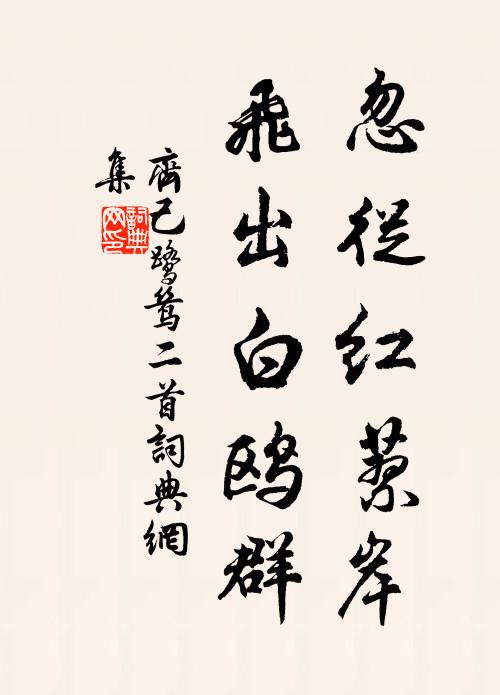 忽從红蓼岸
飛出白鸥群
齊己鹭鸶二首詞典網
集
詞典
网印